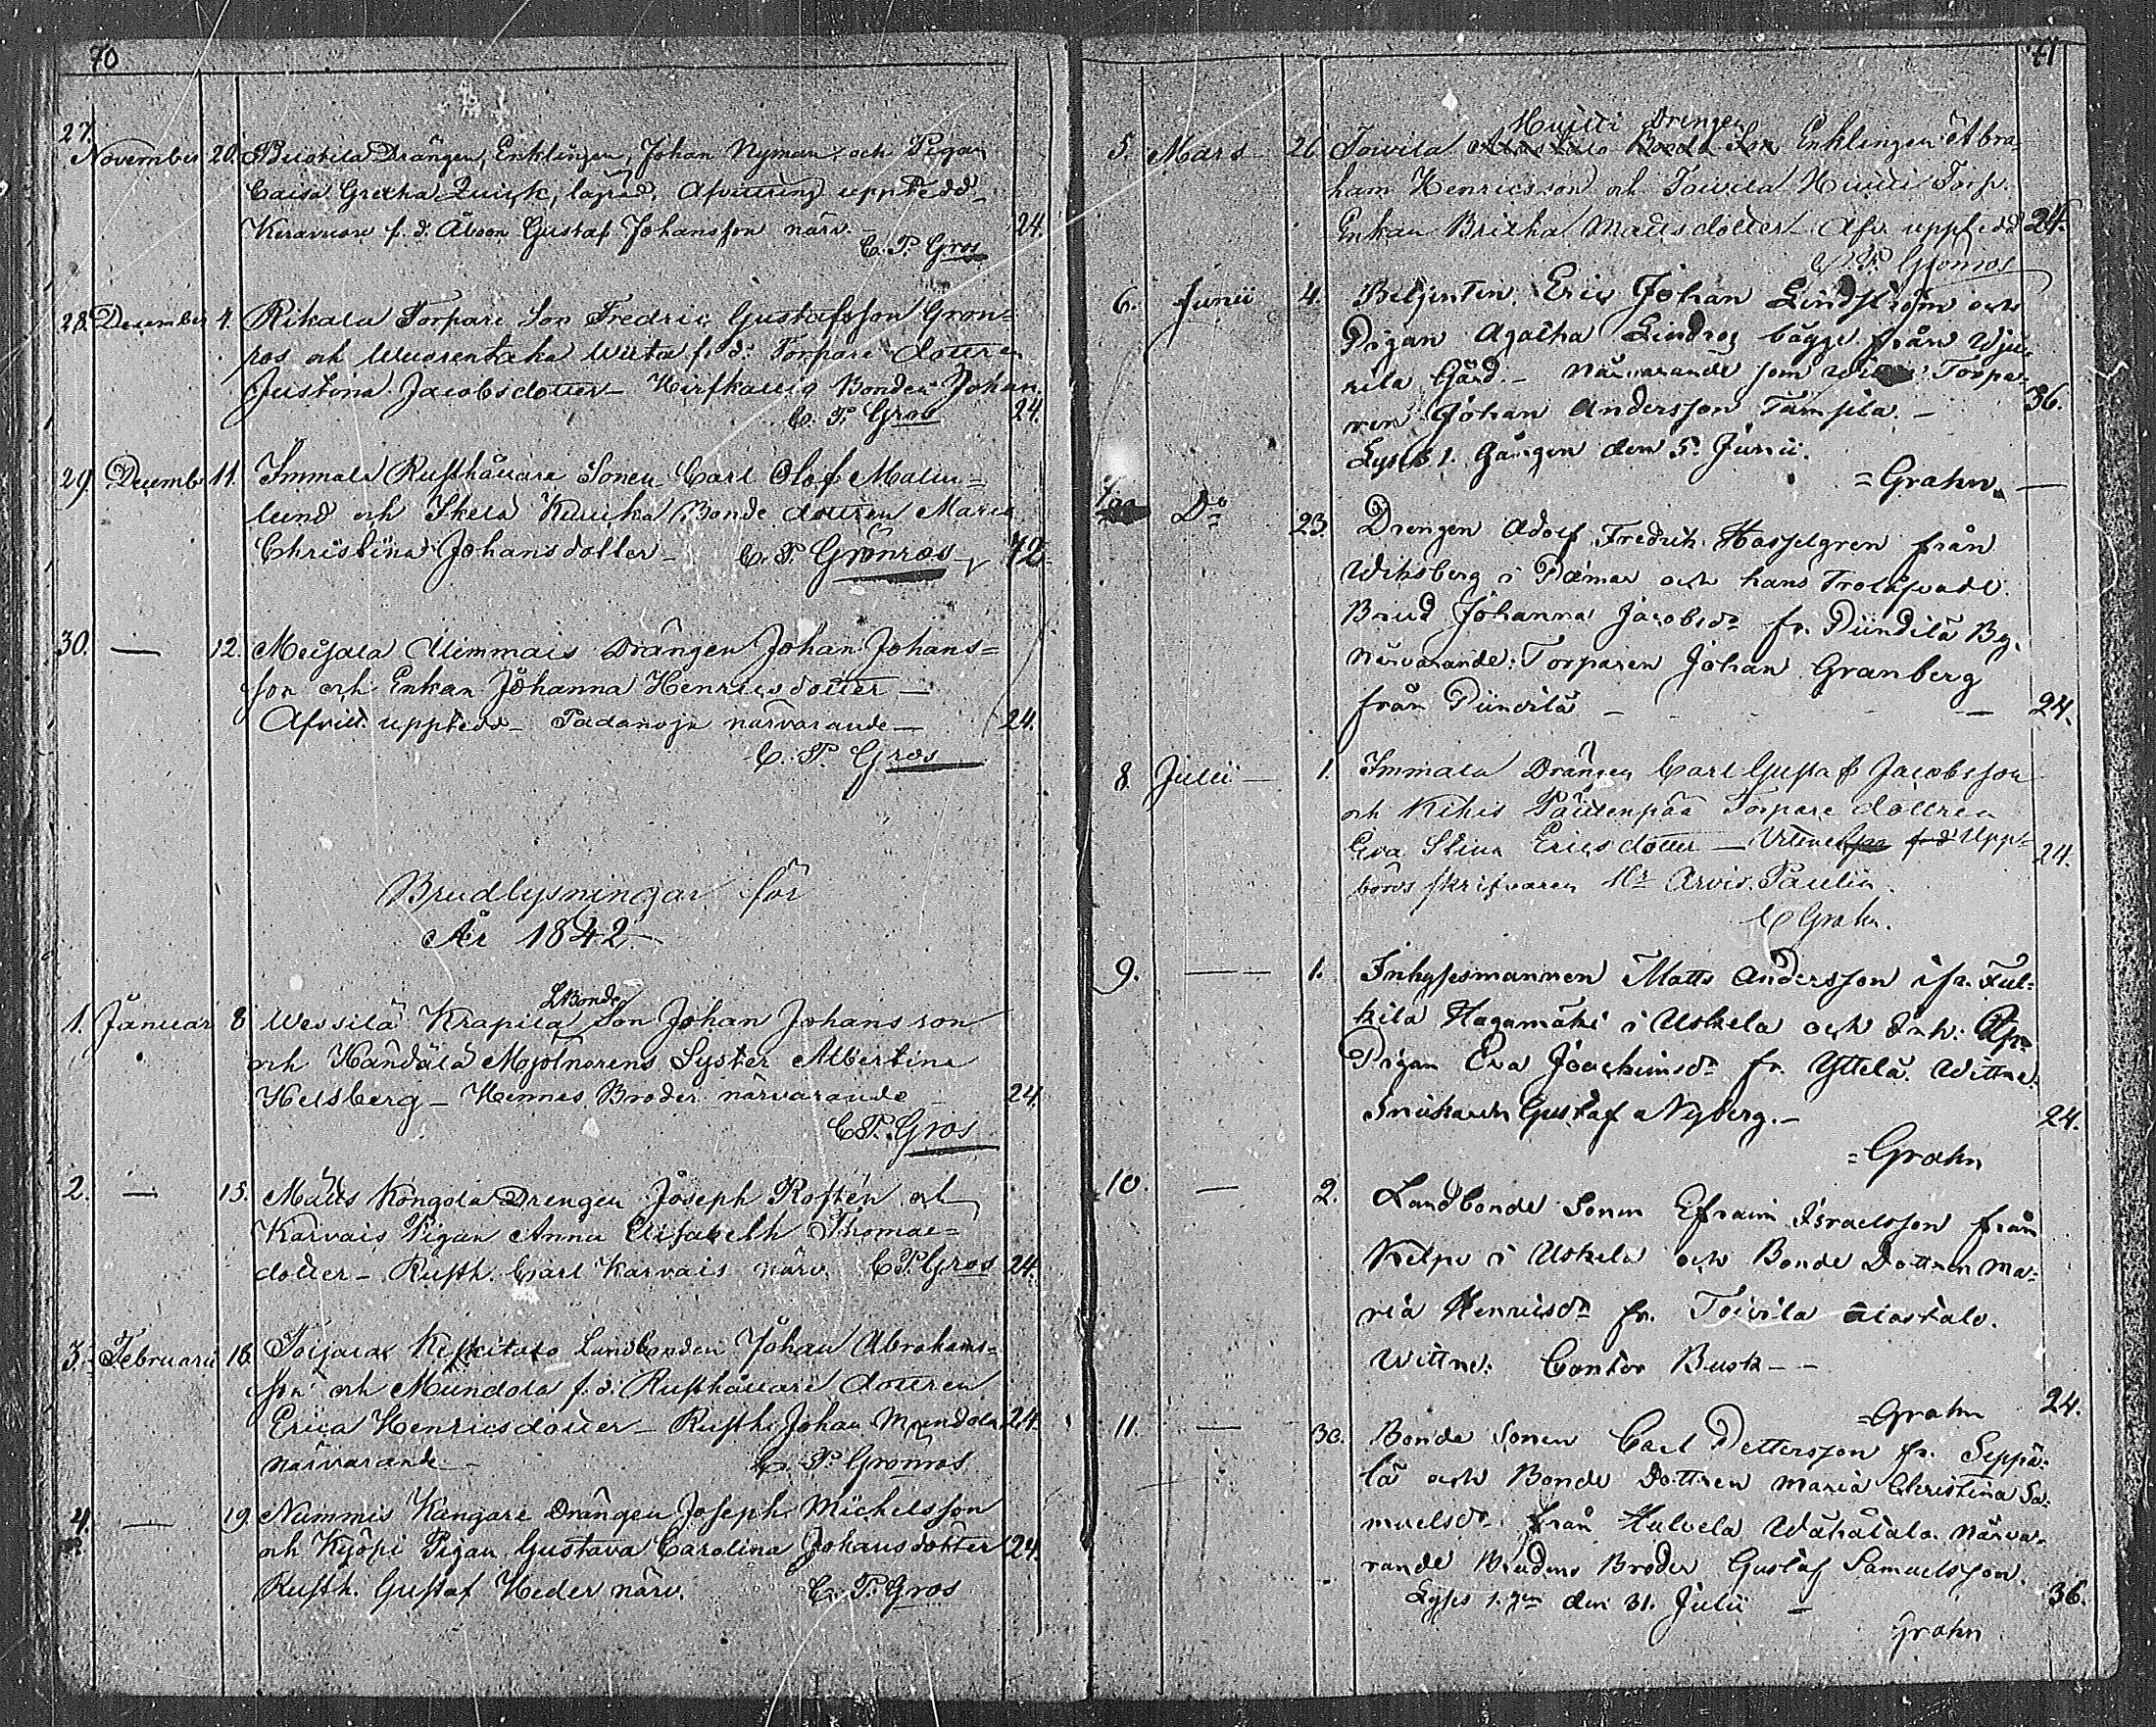 70
27.
November 20. Drängen, Enklingen, Johan Nyman och Pigan
Caisa Gretha Quick, lagvid. Afvittring uppledd
f. d. Gustaf Johansson närv. 24.
C. P. Gros
28. December 4. Rikala Torpare Son Fredric Gustafsson Grön-
ros och Wuorentaka Wiita f. d. Torpare dottren
Justina Jacobsdotter Bonden Johan
C. P. Gros 24.
29. Decemb. 11. Immala Rusthållare Sonen Carl Olof Malm-
lund och Bonde dottren Maria
Christina Johansdotter C. P. Grönros 72.
30. — 12. Meisala Uimmais Drängen Johan Johans-
son och Enkan Johanna Henricsdotter —
Afvitt. uppledd — Padanoja närvarande — 24.
C. P. Gros
Brudlysningar för
År 1842.
LBonde
1. Januar 8 Wessilä Krapila Son Johan Johansson
och Handälä Mjolnarens Syster Albertina
Helsberg — Hennes Broder närvarande 24.
C. P. Gros
2. — 15. Kongola Drengen Joseph Rostén och
Karvais Pigan Anna Elisabeth Thomae-
dotter — Rusth. Carl Karvais närv. C. P. Gros 24.
3. Februarii 18. Toijala Keskitalo Landbonden Johan Abrahams-
son och Mundola f. d. Rusthållare dottren
Erica Henricsdotter — Rusth. Johan Mundola 24.
närvarande — C. P. Gronros
4. — 19. Nummis Kangare Drängen Joseph Michelsson
och Kyöpi Pigan Gustava Carolina Johansdotter 24.
Rusth. Gustaf Heder närv. C. P. Gros
71
Huiti Drengen
5. Mars 26 Toivila Alastalo Bonde Son Enklingen Abra-
ham Henricsson och Toivila Huiti Torp.
Enkan Britha Mattsdotter — Afv. uppledd 24.
C. P. Gronros
6. Junii 4. Betjenten Eric Johan Lindström och
Pigan Agatha Lindroos bägge från Wju-
rila Gård. — Närvarande som Torpa-
ren Johan Andersson Tamsila. — 36.
Lystes 1. Gången den 5. Junii.
= Grahn. —
Do 23. Drengen Adolf Fredrik Hasselgren från
Wiksberg i Pämar och hans Trolofvade
Brud Johanna Jacobsdr fr. Piindilä By.
Närvarande: Torparen Johan Granberg
från Piindilä — — 24.
8. Julii — 1. Immala Drängen Carl Gustaf Jacobsson
och Kihis Päätenpää Torpare dottren
Eva Stina Ericsdotter — f. d. Upp- 24.
börds skrifvaren Hr Arvis. Paulin.
C Grahn.
9. — 1. Inhysesmannen Matts Andersson ifr.
kila Hagamäki i Uskela och Inh:
Pigan Eva Joachimsdr fr. Yttelä. Wittne.
Snickaren Gustaf Nyberg. — 24.
= Grahn
10. — 2. Landbonde Sonen Efraim Israelsson från
i Uskela och Bonde Dottren Ma-
ria Henricsdr fr. Toivila Alastalo.
Wittne: Cantor Busk — —
= Grahn 24.
11. — 30. Bonde Sonen Carl Pettersson fr. Seppä-
lä och Bonde Dottren Maria Christina Sa-
muelsdr från Wähätalo. Närva-
rande Brudens Broder Gustaf Samuelsson.
Lystes 1. gen den 31. Julii — 36.
Grahn